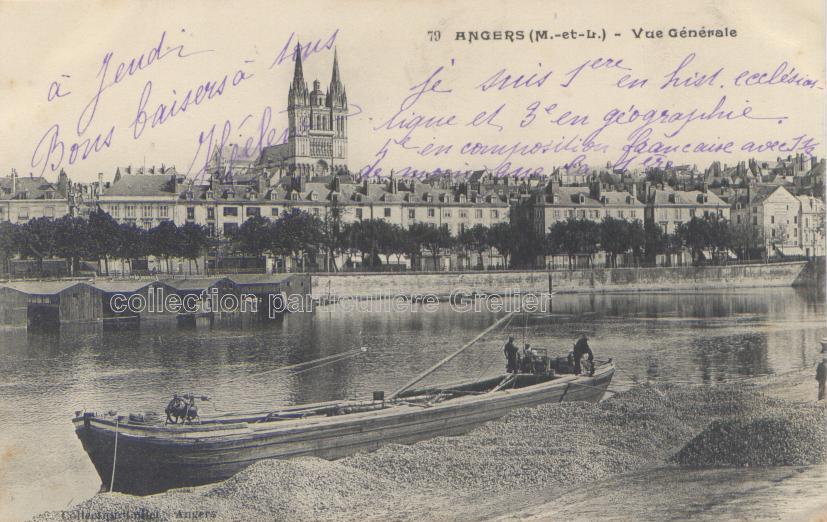 79 ANGERS (M.-et-L.) - Vue Générale
à Jeudi
Bons baisers à tous
Hélène
Je suis 1ère en hist. ecclésias-
tique et 3e en géographie.
4e en composition française avec 1 1/2
de moins que la 1ère
collection particulière Grelier
Collection Angers